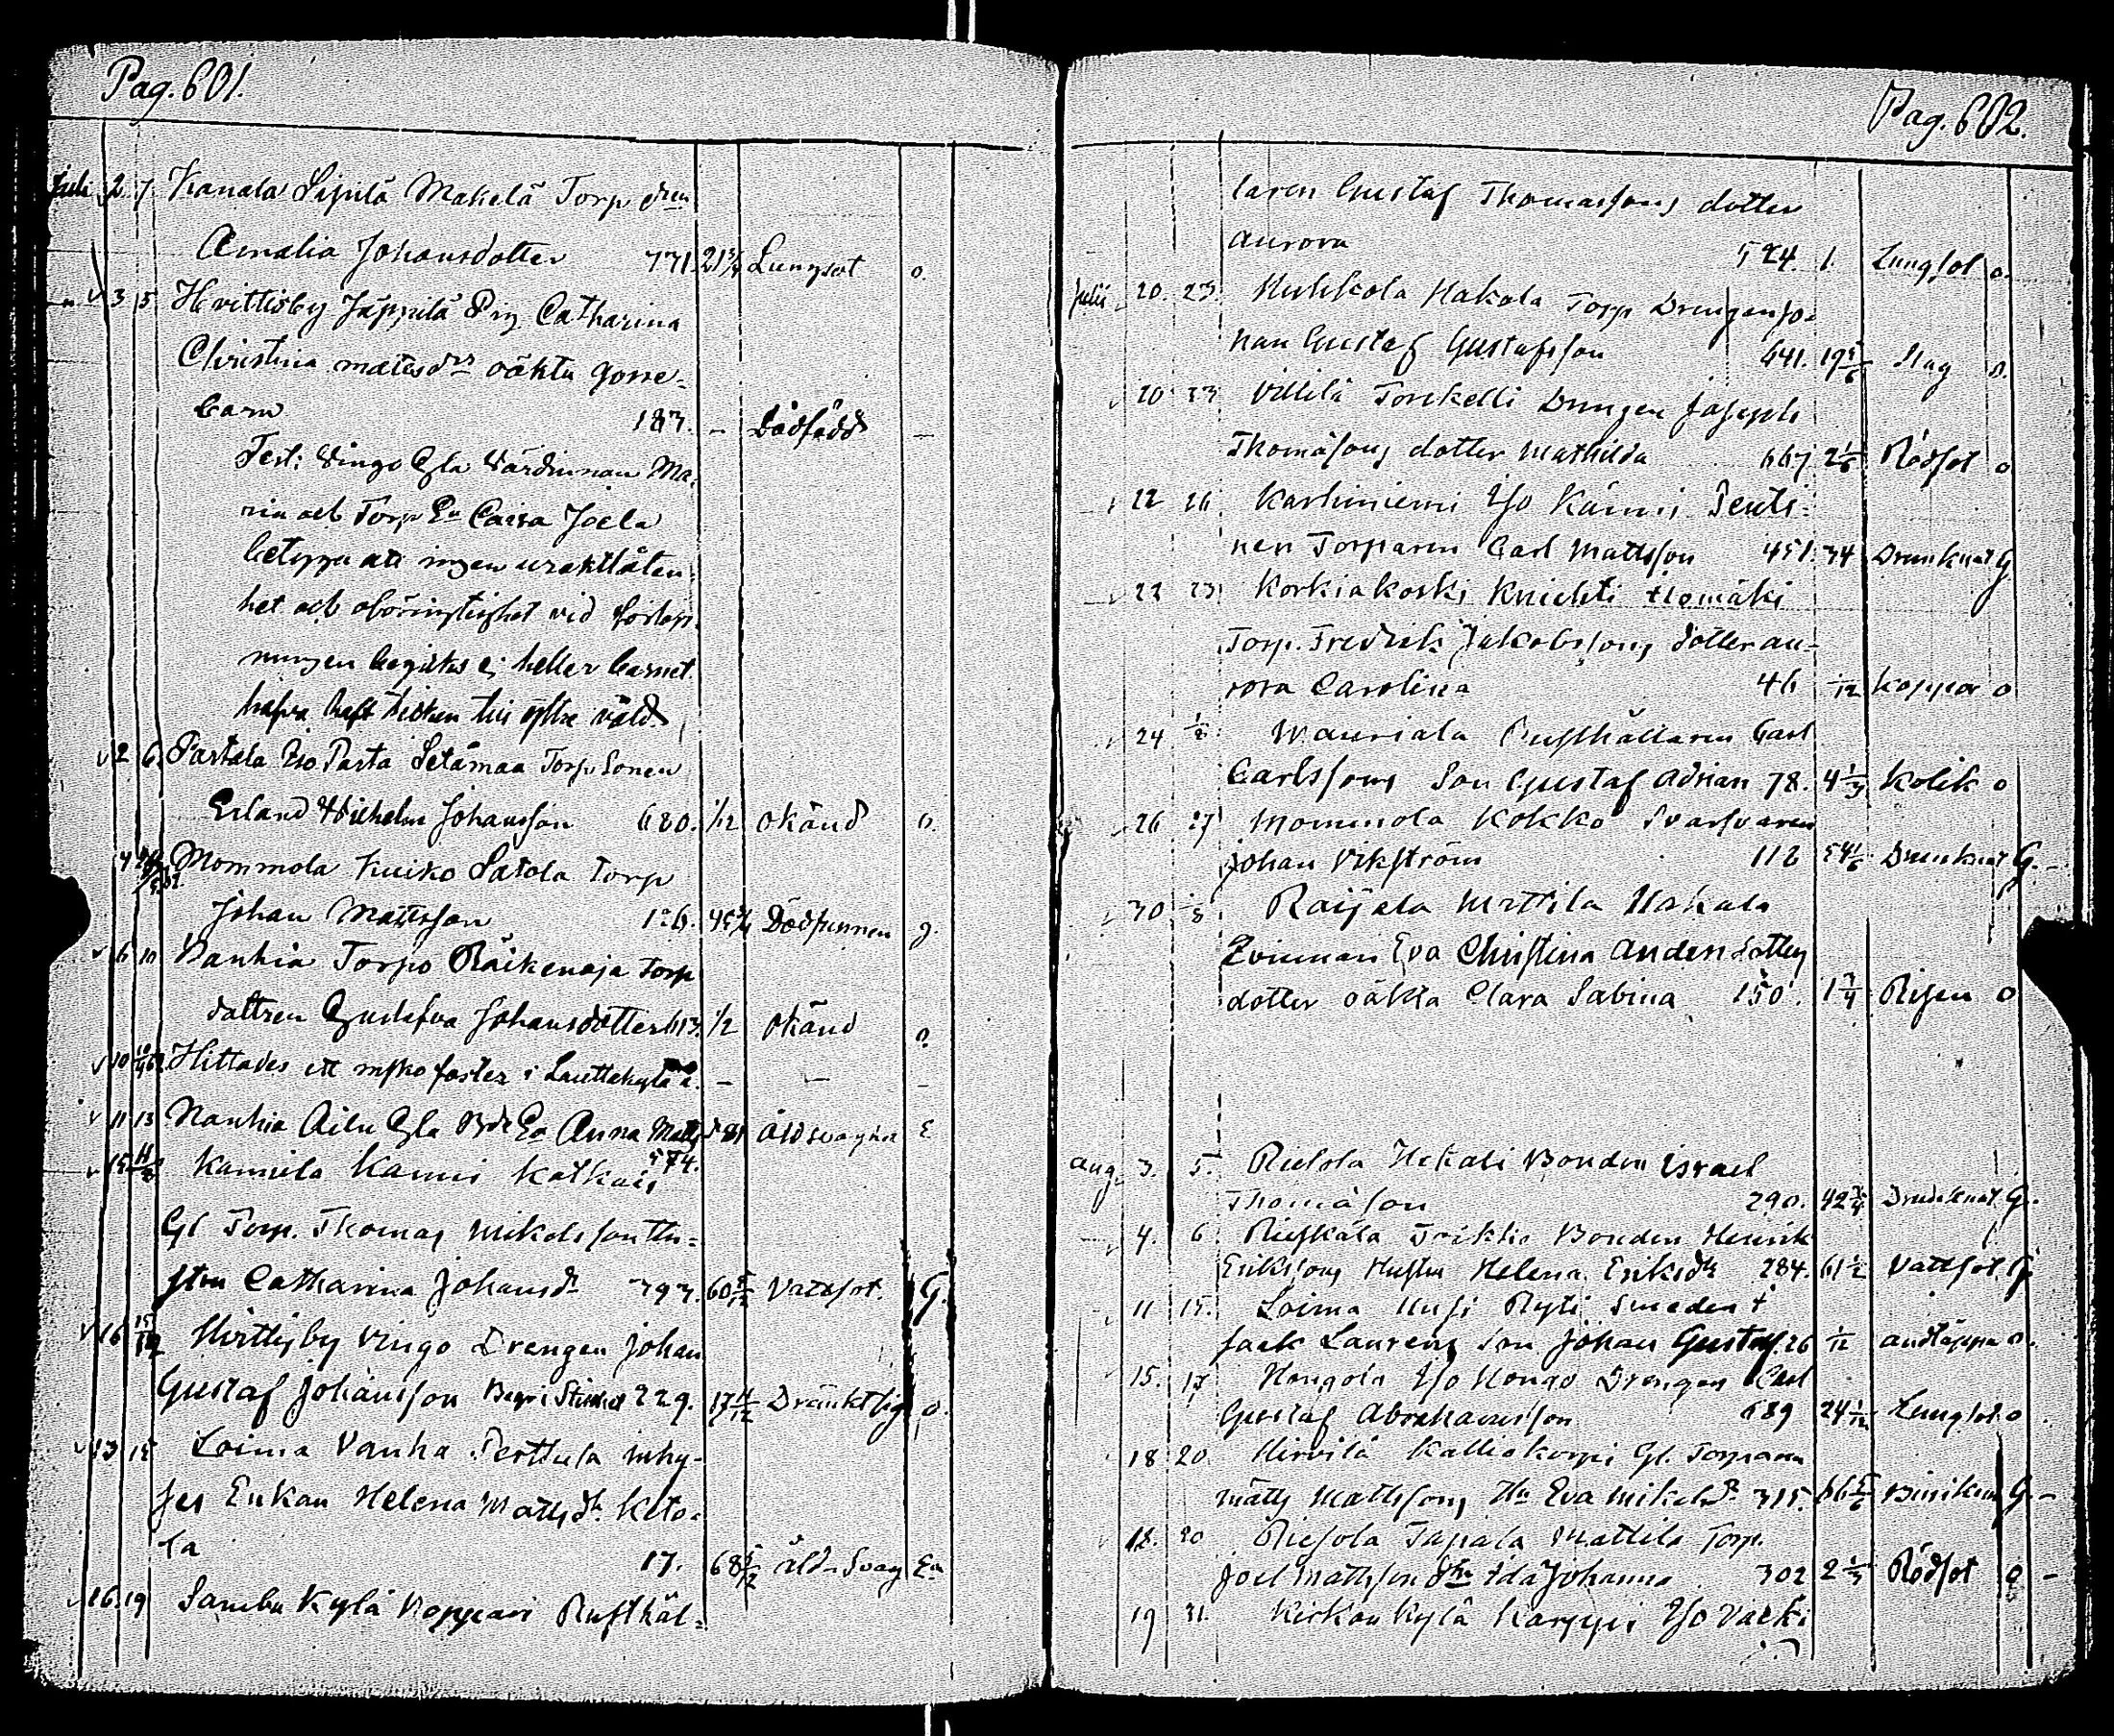 Pag. 601.
Juli 2. 7. Kanala Sipilä Makelä Torp drn
Amalia Johansdotter 771. 21 3/4 Lungsot o.
3 5 Hvittisby Jäppilä Pig. Catharina
Christina matts drs oäkta gosse-
barn 183. - Dödfödd -
Test: Vingo Gla Värdinnan Ma-
ria och Torp En Caisa Joela
betyga att ingen uraktlåten-
het och oböringtighet vid förlop-
ningen begåtts ej heller barnet
hafva haft tecken till yttre våld
2 6. Partala Uso Parta Setämaa Torp. Sonen
Erland Wilhelm Johansson 680. 1/12 okänd o.
4 Mommola Kuiko Satola Torp
Johan Mattsson 126. 45 3/4 Dödfunnen g.
6 10 Nanhia Torpo Räikenoja Torp
dottren Gustafva Johansdotter 613. 1/2 okänd o.
10 Hittades ett foster i Lauttakylä å. - - -
11 13 Nanhia Ailu Gla Bde Ea Anna Matts dr 81 Åldsvaghet E.
574.
15 Kamila Kanni Katkais
Gl Torp. Thomas Mikelsson Hu-
strn Catharina Johansdr 793. 60 5/12 Vattsot. G.
16 Hvittisby Vingo Drengen Johan
Gustaf Johansson 229. 17 11/12 Dränkt sig o.
13 15 Loima Vanha Perttula inhy-
ses Enkan Helena Mattsdr. Keto-
la 17. 68 5/12 åld. Svag En
16. 19 Sambu Kylä Koppari Rusthål-
Pag. 602.
laren Gustaf Thomassons dotter
Aurora 524. 1. Lungsot o.
Julii 20. 23. Huhkola Hakola Torp Drengen Jo-
han Gustaf Gustafsson 641. 19 5/6 Slag o.
20 23 Villilä Torikelli Drengen Joseph
Thomasons dotter Mathilda 667 2 1/6 Rödsot o
22 26 Karhiniemi Yso Kämi Pents-
nen Torparen Carl Mattsson 451. 34 Drunknat G
22 23 Korkiakoski Knichti
Torp. Fredrik Jakobssons dotter au-
rora Carolina 46 1/12 koppor o
24 1/8 Wauriala Rusthållaren Carl
Carlssons Son Gustaf Adrian 78. 4 1/3 Kolik o
26 27 Mommola Kokko Svarfvaren
Johan Vikström 112 54 1/6 Drunknat G. -
30 1/8 Raijala Mattila Hakala
Qvinnan Eva Christina Anders dotters
dotter oäkta Clara Sabina 150. 1 3/4 Risen o
aug. 3. 5. Riesola Hekali Bonden Israel
Thomäson 290. 42 3/4 Drunknat G.
4. 6 Rieskala Frikki Bonden Henrik
Erikssons Hustru Helena Eriksdr 284. 61 1/2 Vattsot. G
11 15. Loima Husi Ryti Smeden
Isack Laurens son Johan Gustaf. 26 1/12 andtäppa o.
15. 17 Hongola Yso Hongo Drengen Carl
Gustaf Abrahamsson 689 24 1/12 Lungsot. o
18 20. Hirvilä Kalliokorpi Gl. Torparen
Matts Mattssons Hu Eva Mikelsdr. 315. 66 5/6 G. -
18. 20 Riesola Tapala Mattila Torp.
Joel Mattsson dtr Ida Johanna 302 2 1/3 Rödsot o -
19 31. Kirkon Kylä Karppi Yso Vaeki